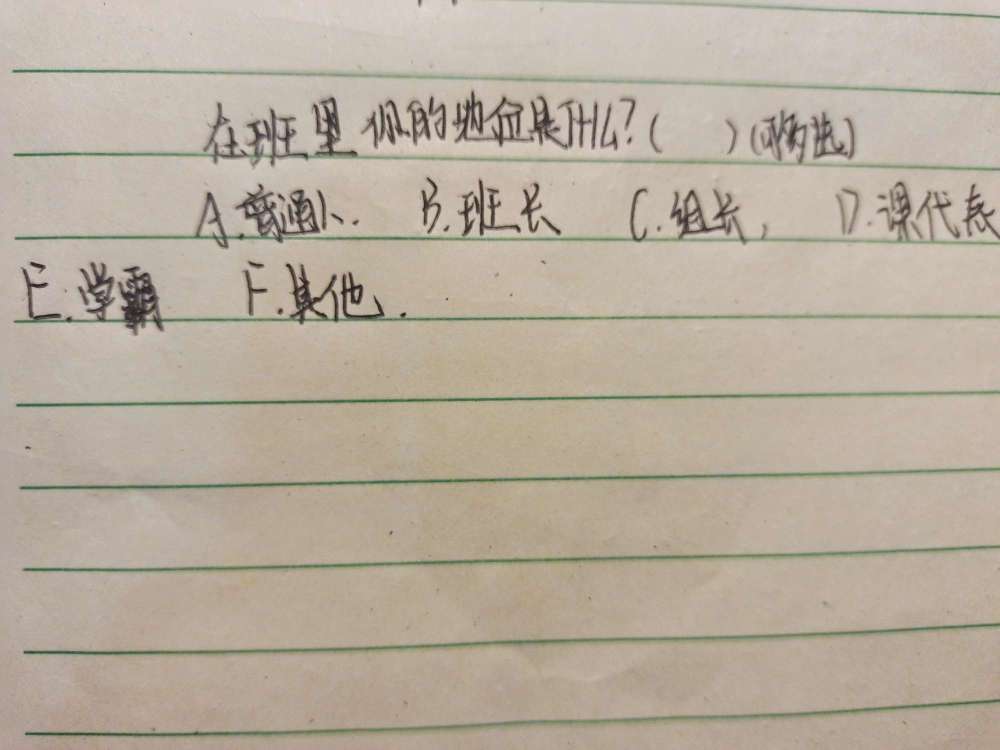 在班里你的地位是什么?( )(可多选)
A.普通人. B.班长 C.组长, D.课代表
E.学霸 F.其他.